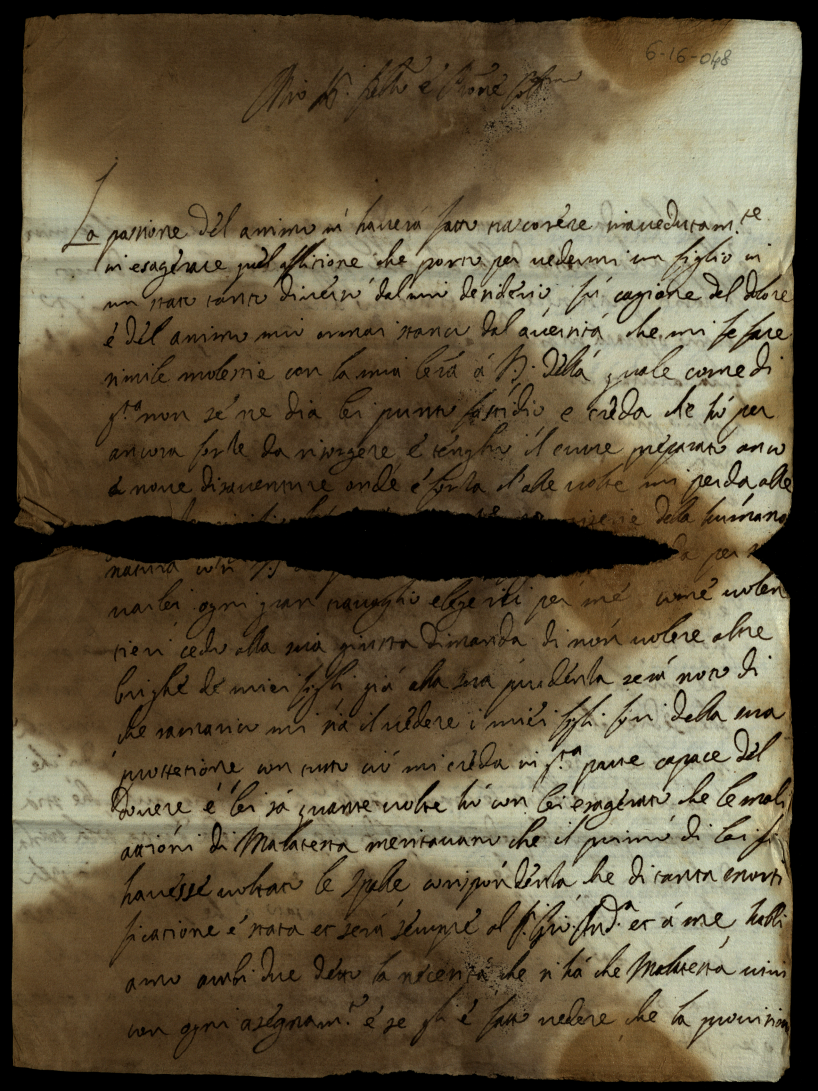 6-16-048
Mio Sr.
La passione del animo m' haverà fatto trascorere inavedutam.te
in esagerare quel afflitione che porto per vedermi un figlio in
un stato tanto diverso dal mio desiderio fù cagione del dolore
é dél animo mio ormai stanco dal aversità che mi fe fare
simile molestie con la mia letra á V.S. délla quale come di
q.ta non sé ne dia lei punto fastidio e créda che hó per
ancora forte da risorgere é ténghio il cuore préparato anco
á nove disaventure onde é forza ch'alle volte mi perda alle
miserie della humana
natura con da per
var lei ogni gran travaglio elegérei per mé comé volen
tieri cedo alla sua giusta dimanda di nón volere altre
brighé dé miei figli giá alla sua prudénza será noto di
che ramarico mi sia il védere i miéi figli fori della sua
prottetione con tutto ció mi créda in q.ta parte capace dél
dovere é lei sá quante volte hó con lei esagerato che le mali
attióni di Malatesta meritavano che il primó di lor si
havéssé voltato le spalle con prudénza che di tanta morti
ficatione é stata et será sémpré al et á me habbi
amo ambi due détto la nécésitá che si há che Malatestá vivi
con ogni aségnam.to é se gli é fatto vedére che la provision